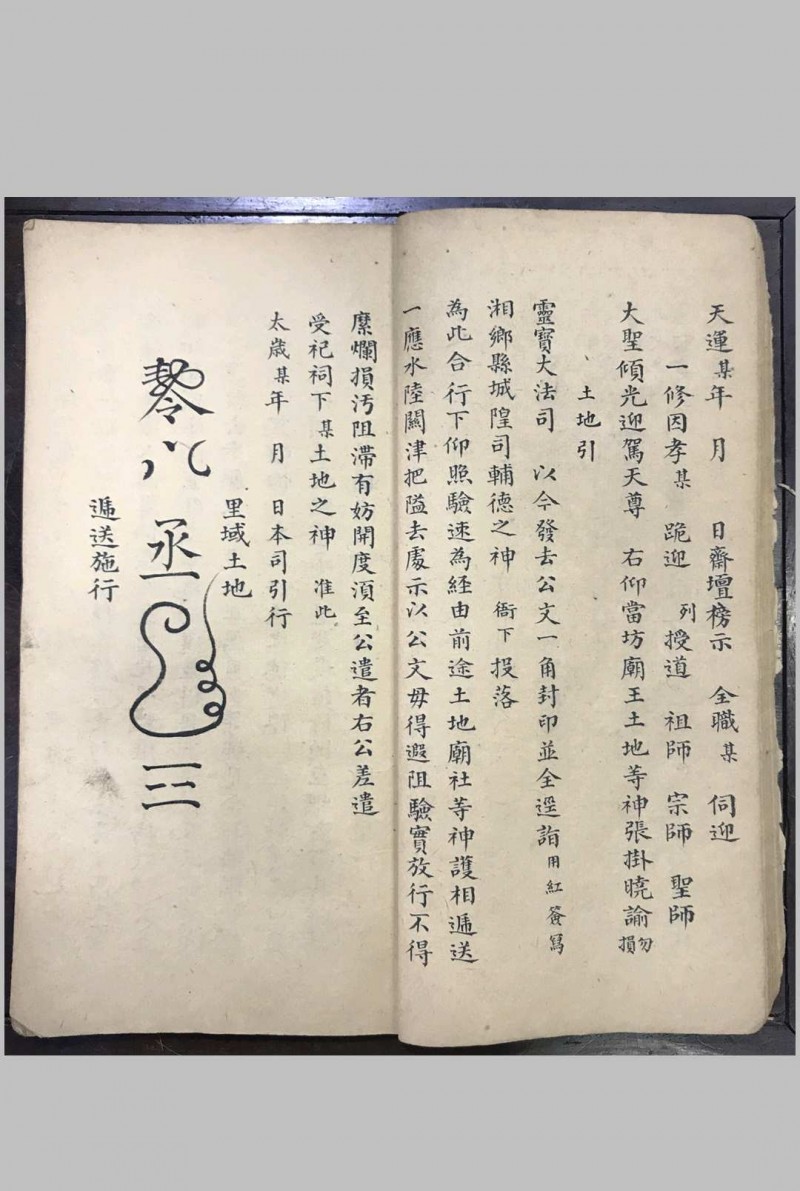 天運某年　月　日齋壇榜示　全職某　伺迎
一修因孝某　跪迎　列授道　祖師　宗師　聖師
大聖傾光迎駕天尊　右仰當坊廟王土地等神張掛曉諭勿損
土地引
靈寳大法司　以今發去公文一角封印並全逕詣用紅簽寫
湘鄉縣城隍司輔德之神　衙下投落
為此合行下仰照驗速為経由前途土地廟社等神護相遞送
一應水陸關津把隘去處示以公文毋得遐阻驗實放行不得
縻爛損汚阻滯有妨開度湏至公遣者右公差遣
受祀祠下某土地之神　准此
太歲某年　月　日本司引行
里域土地
遞送施行